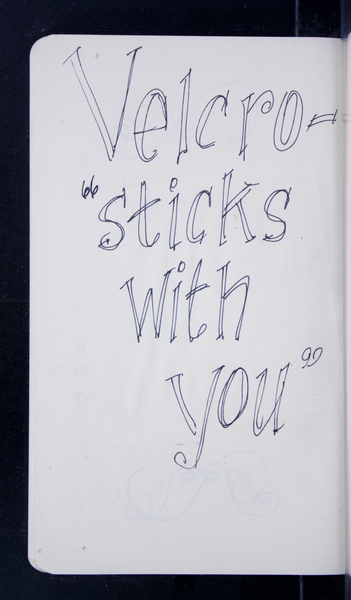 Velcro-
"sticks
with
you"